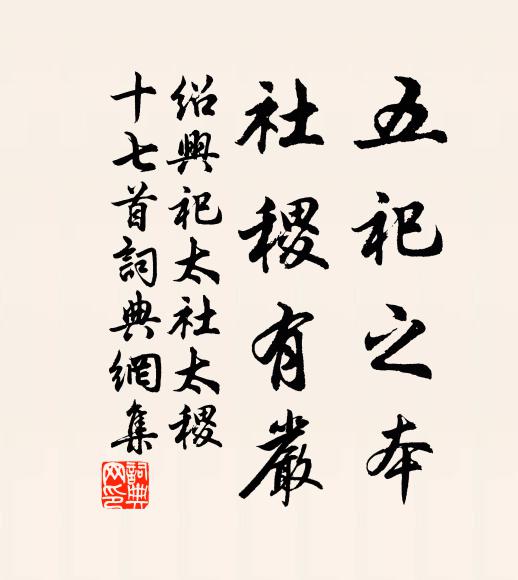 五祀之本
社稷有嚴
紹興祀太社太稷
十七首詞典網集
詞典網印